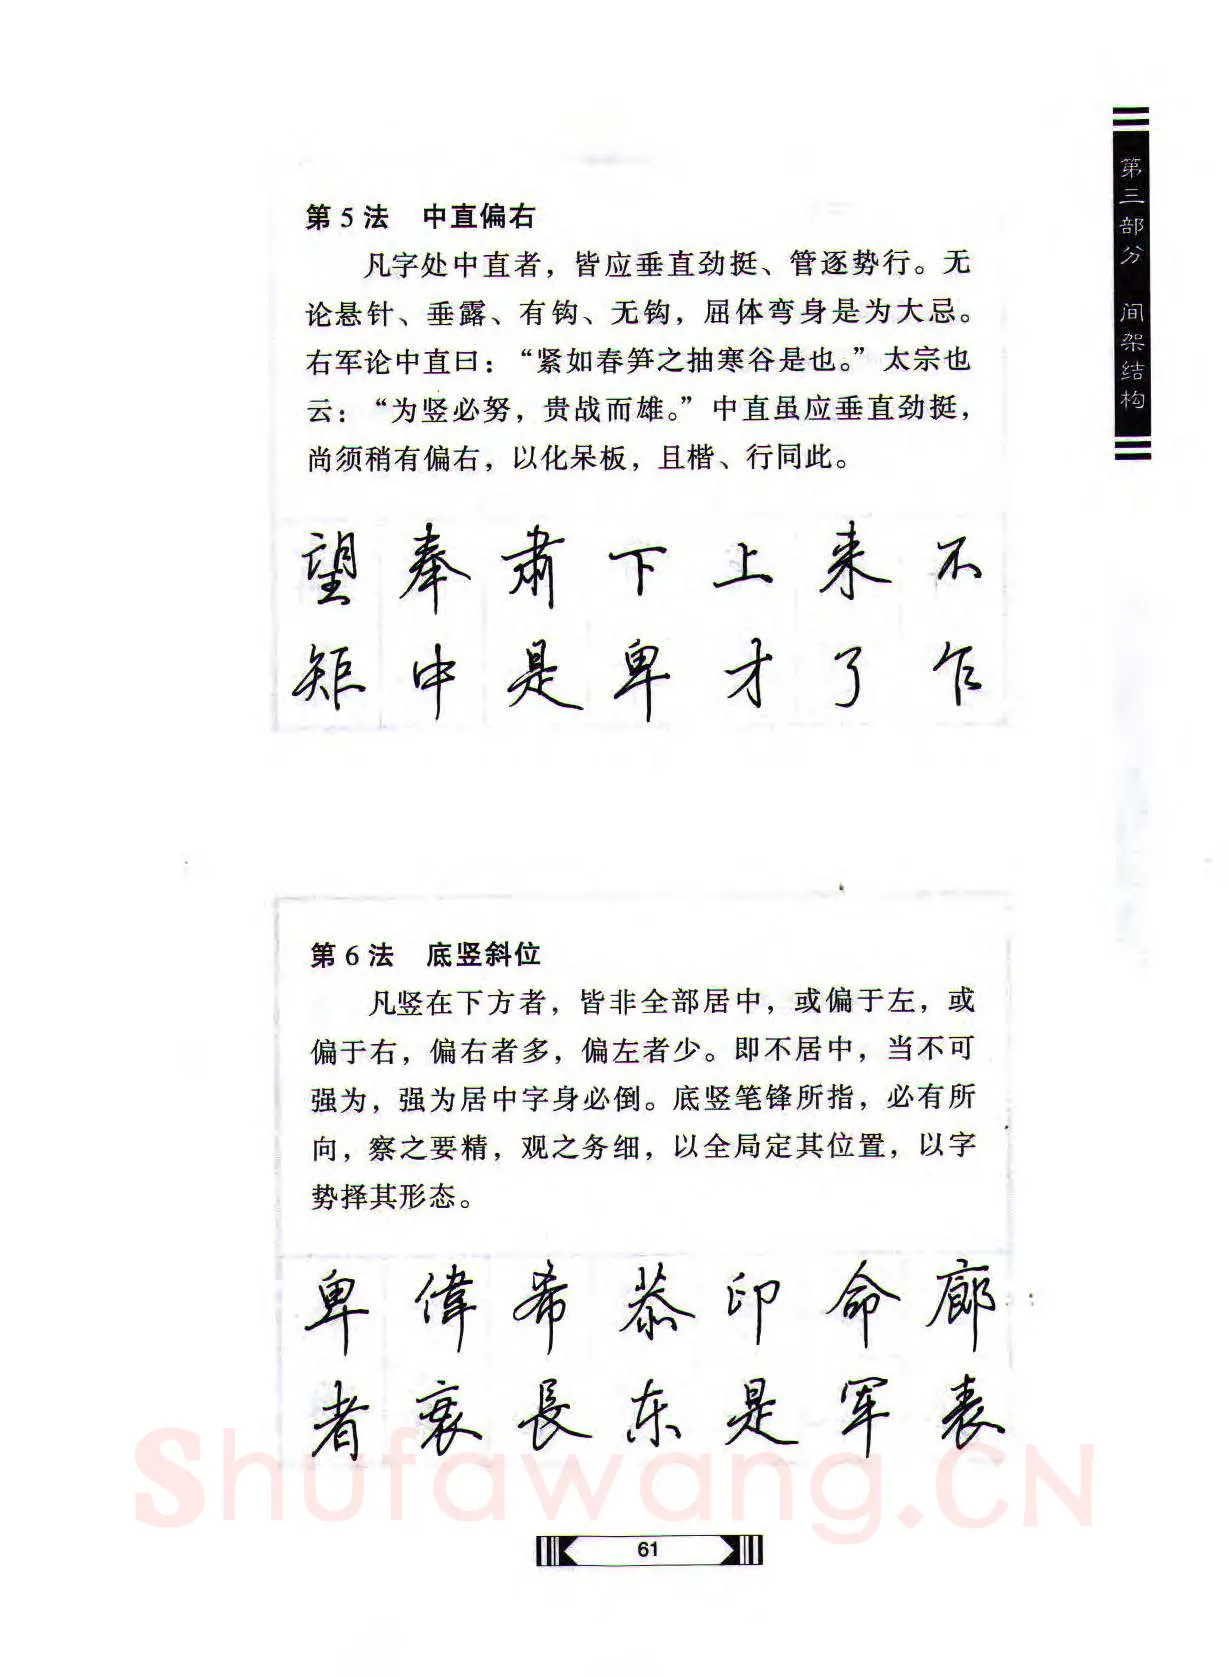 第三部分 间架结构
第5法 中直偏右
凡字处中直者，皆应垂直劲挺、管逐势行。无
论悬针、垂露、有钩、无钩，屈体弯身是为大忌。
右军论中直曰：“紧如春笋之抽寒谷是也。”太宗也
云：“为竖必努，贵战而雄。”中直虽应垂直劲挺，
尚须稍有偏右，以化呆板，且楷、行同此。
望 奉 肃 下 上 来 不
矩 中 是 卑 才 了 乍
第6法 底竖斜位
凡竖在下方者，皆非全部居中，或偏于左，或
偏于右，偏右者多，偏左者少。即不居中，当不可
强为，强为居中字身必倒。底竖笔锋所指，必有所
向，察之要精，观之务细，以全局定其位置，以字
势择其形态。
卑 偉 希 恭 印 命 廊
者 衰 長 东 是 军 表
Shufawang.CN
61